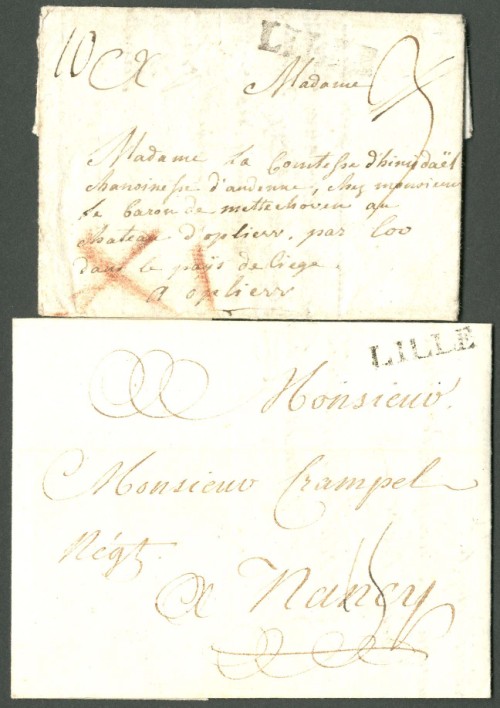 LILLE
10 Madame 3
Madame la Comtesse d'hinisdaël
chanoinesse d'andenne, chez monsieur
le baron de mettechoven au
chateau d'oplieux, par loo
dans le païs de liege.
A oplieux
LILLE
Monsieur
Monsieur Crampel
Négt.
A Nancy